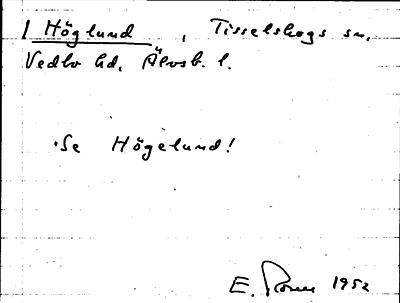 1 Höglund, Tisselskogs sn.
Vedbo hd. Älvsb. l.
Se Högelund!
E. 1952